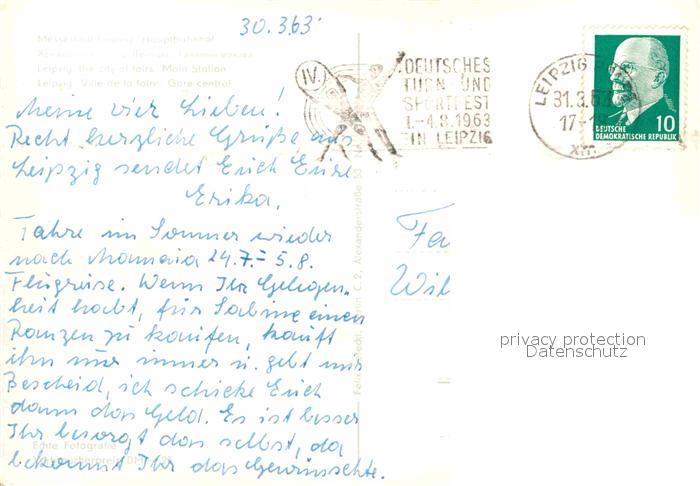 30.3.63
Messestadt Leipzig, Hauptbahnhof
Leipzig, the city of fairs, Main Station
Leipzig, Ville de la foire, Gare central
Meine vier Lieben!
Recht herzliche Grüße aus
Leipzig sendet Euch Eure
Erika.
Fahre im Sommer wieder
nach Mamaia 24.7.- 5.8.
Flugreise. Wenn Ihr Gelegen-
heit habt, für Sabine einen
Ranzen zu kaufen, kauft
ihn nur immer u. gebt mir
Bescheid, ich schicke Euch
dann das Geld. Es ist besser
Ihr besorgt das selbst, da
bekommt Ihr das Gewünschte.
Echte Fotografie
IV.
DEUTSCHES
TURN- UND
SPORTFEST
1.-4.8.1963
IN LEIPZIG
LEIPZIG
31.3.63
17-18
DEUTSCHE
DEMOKRATISCHE REPUBLIK
10
Fa
Wil
C 2, Alexanderstraße
privacy protection
Datenschutz